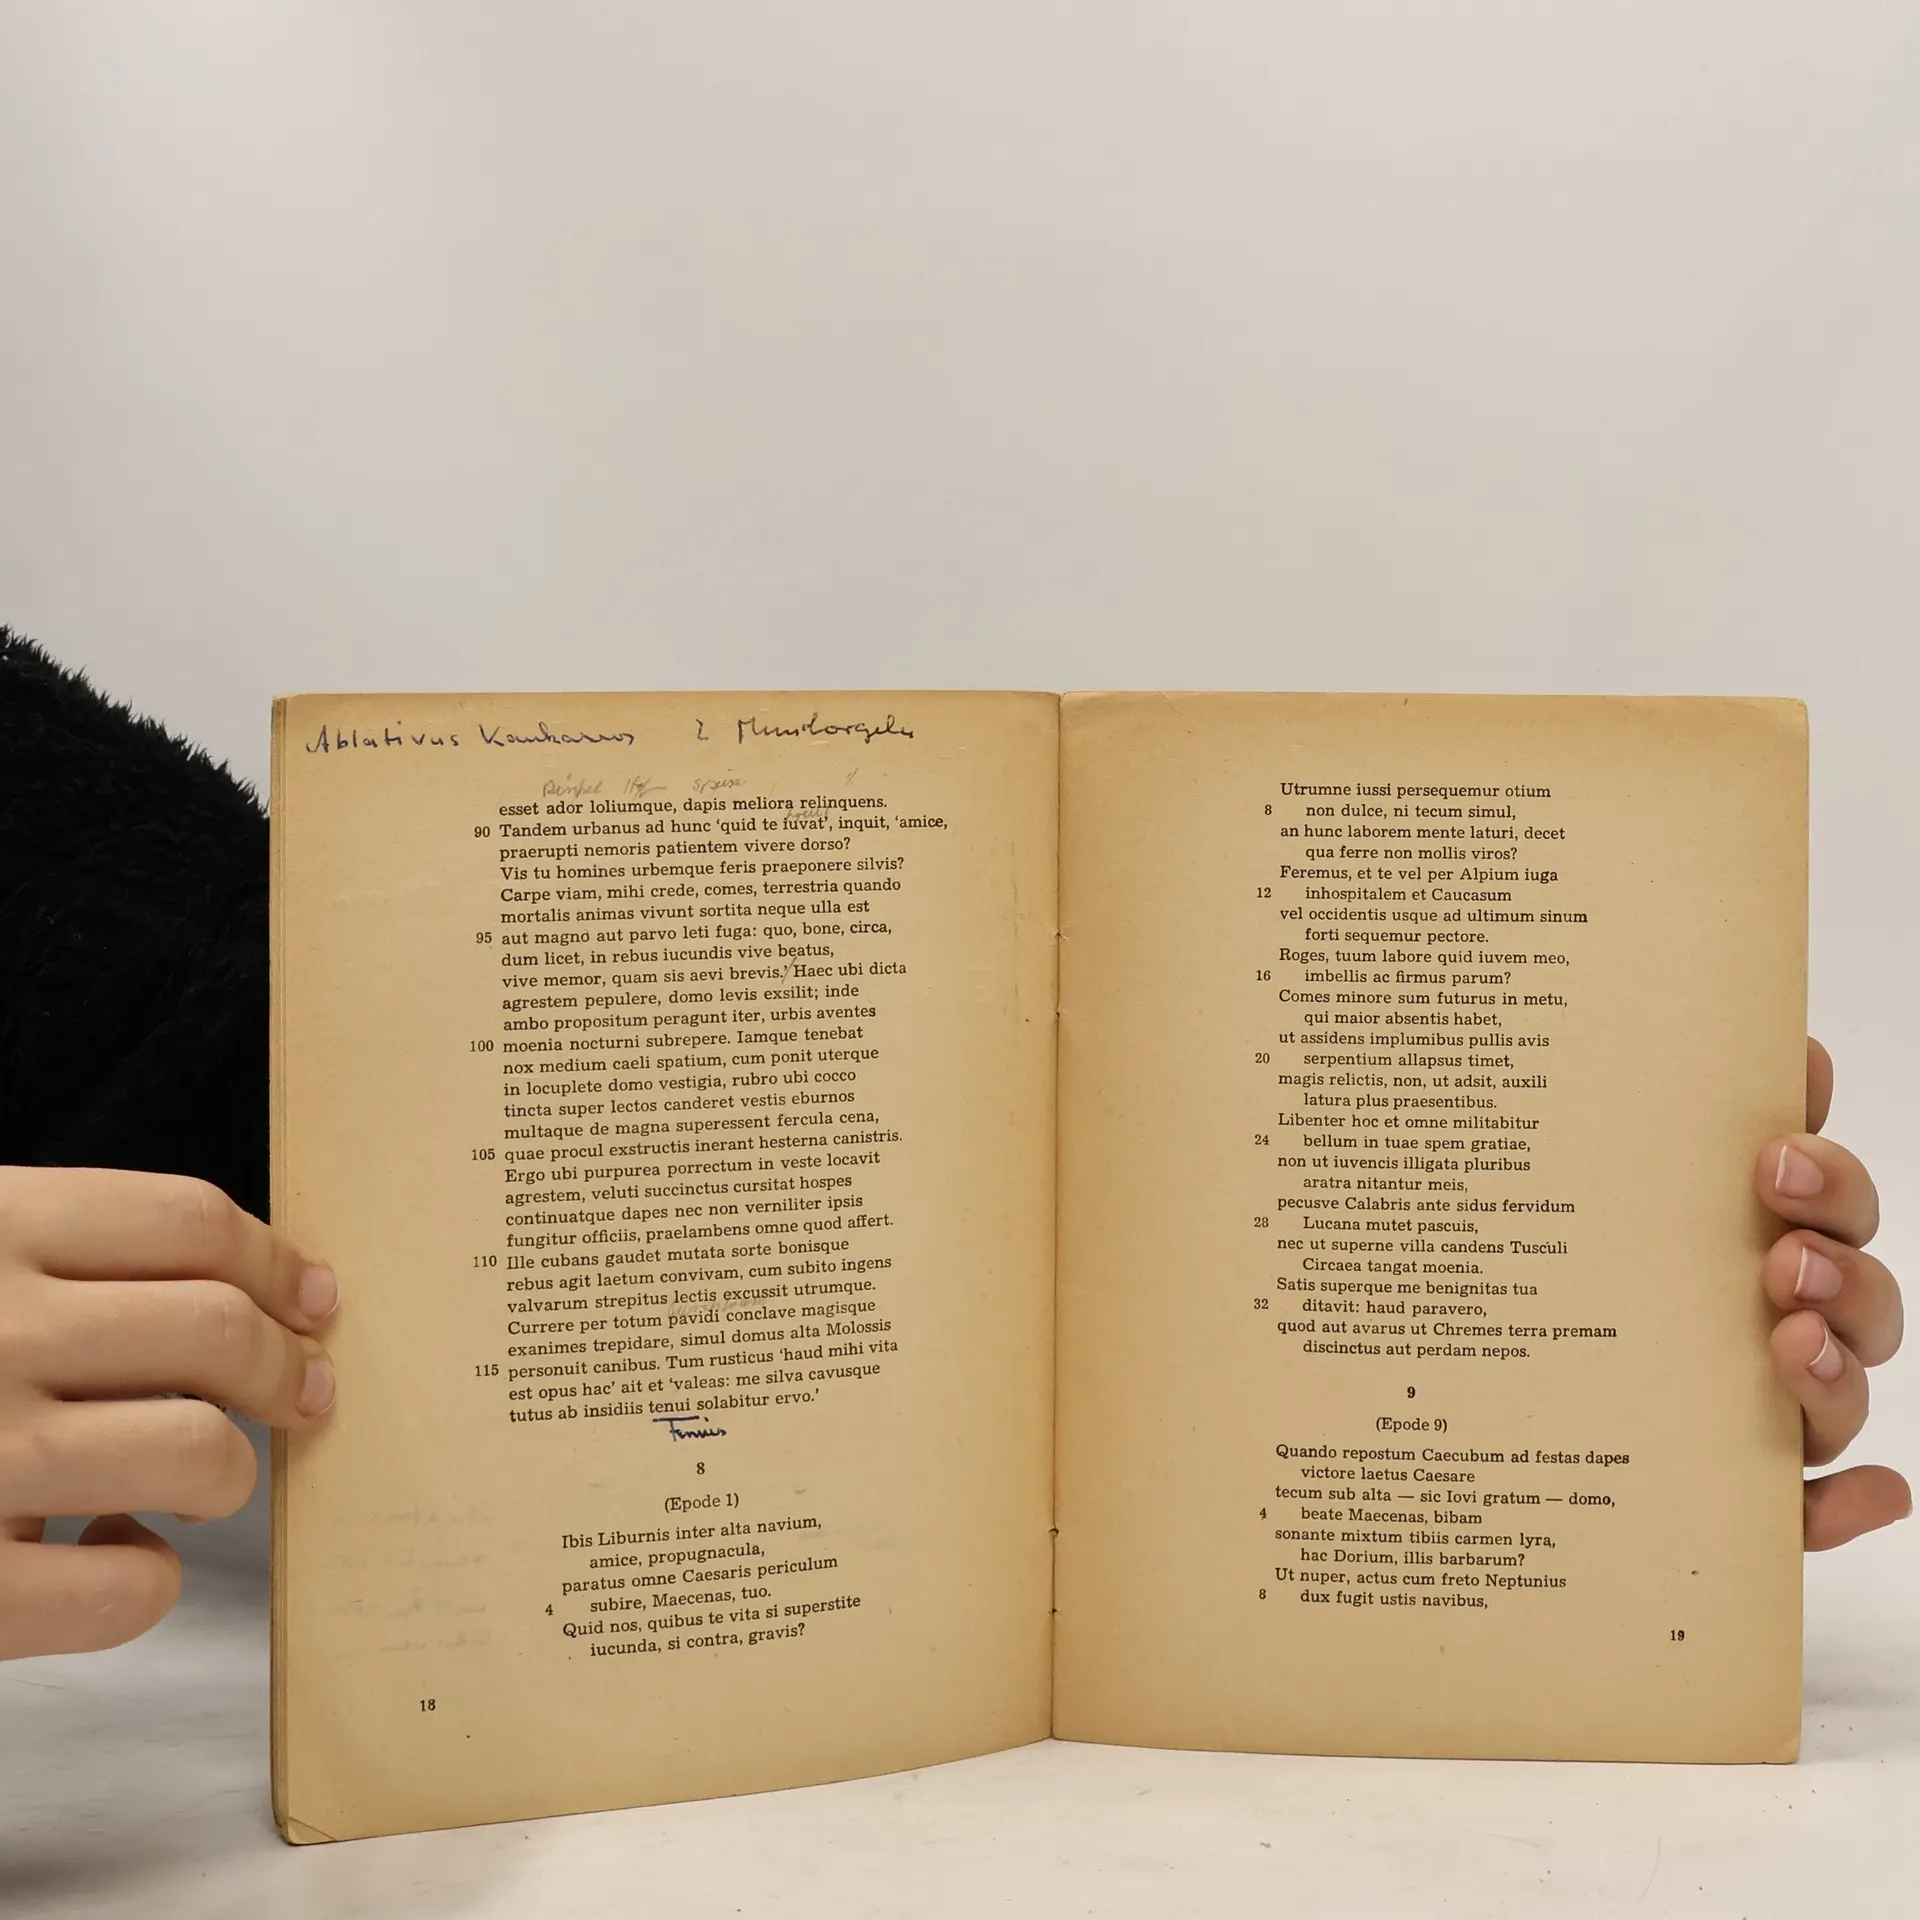 Ablativus
speise
esset ador loliumque, dapis meliora relinquens.
90 Tandem urbanus ad hunc ‘quid te iuvat’, inquit, ‘amice,
praerupti nemoris patientem vivere dorso?
Vis tu homines urbemque feris praeponere silvis?
Carpe viam, mihi crede, comes, terrestria quando
mortalis animas vivunt sortita neque ulla est
95 aut magno aut parvo leti fuga: quo, bone, circa,
dum licet, in rebus iucundis vive beatus,
vive memor, quam sis aevi brevis.’ Haec ubi dicta
agrestem pepulere, domo levis exsilit; inde
ambo propositum peragunt iter, urbis aventes
100 moenia nocturni subrepere. Iamque tenebat
nox medium caeli spatium, cum ponit uterque
in locuplete domo vestigia, rubro ubi cocco
tincta super lectos canderet vestis eburnos
multaque de magna superessent fercula cena,
105 quae procul exstructis inerant hesterna canistris.
Ergo ubi purpurea porrectum in veste locavit
agrestem, veluti succinctus cursitat hospes
continuatque dapes nec non verniliter ipsis
fungitur officiis, praelambens omne quod affert.
110 Ille cubans gaudet mutata sorte bonisque
rebus agit laetum convivam, cum subito ingens
valvarum strepitus lectis excussit utrumque.
Currere per totum pavidi conclave magisque
exanimes trepidare, simul domus alta Molossis
115 personuit canibus. Tum rusticus ‘haud mihi vita
est opus hac’ ait et ‘valeas: me silva cavusque
tutus ab insidiis tenui solabitur ervo.’
8
(Epode 1)
Ibis Liburnis inter alta navium,
amice, propugnacula,
paratus omne Caesaris periculum
4 subire, Maecenas, tuo.
Quid nos, quibus te vita si superstite
iucunda, si contra, gravis?
18
Utrumne iussi persequemur otium
8 non dulce, ni tecum simul,
an hunc laborem mente laturi, decet
qua ferre non mollis viros?
Feremus, et te vel per Alpium iuga
12 inhospitalem et Caucasum
vel occidentis usque ad ultimum sinum
forti sequemur pectore.
Roges, tuum labore quid iuvem meo,
16 imbellis ac firmus parum?
Comes minore sum futurus in metu,
qui maior absentis habet,
ut assidens implumibus pullis avis
20 serpentium allapsus timet,
magis relictis, non, ut adsit, auxili
latura plus praesentibus.
Libenter hoc et omne militabitur
24 bellum in tuae spem gratiae,
non ut iuvencis illigata pluribus
aratra nitantur meis,
pecusve Calabris ante sidus fervidum
28 Lucana mutet pascuis,
nec ut superne villa candens Tusculi
Circaea tangat moenia.
Satis superque me benignitas tua
32 ditavit: haud paravero,
quod aut avarus ut Chremes terra premam
discinctus aut perdam nepos.
9
(Epode 9)
Quando repostum Caecubum ad festas dapes
victore laetus Caesare
tecum sub alta — sic Iovi gratum — domo,
4 beate Maecenas, bibam
sonante mixtum tibiis carmen lyra,
hac Dorium, illis barbarum?
Ut nuper, actus cum freto Neptunius
8 dux fugit ustis navibus,
19